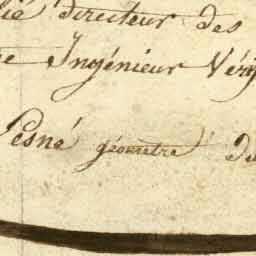 directeur des
Ingénieur Véri
Pesné géometre d